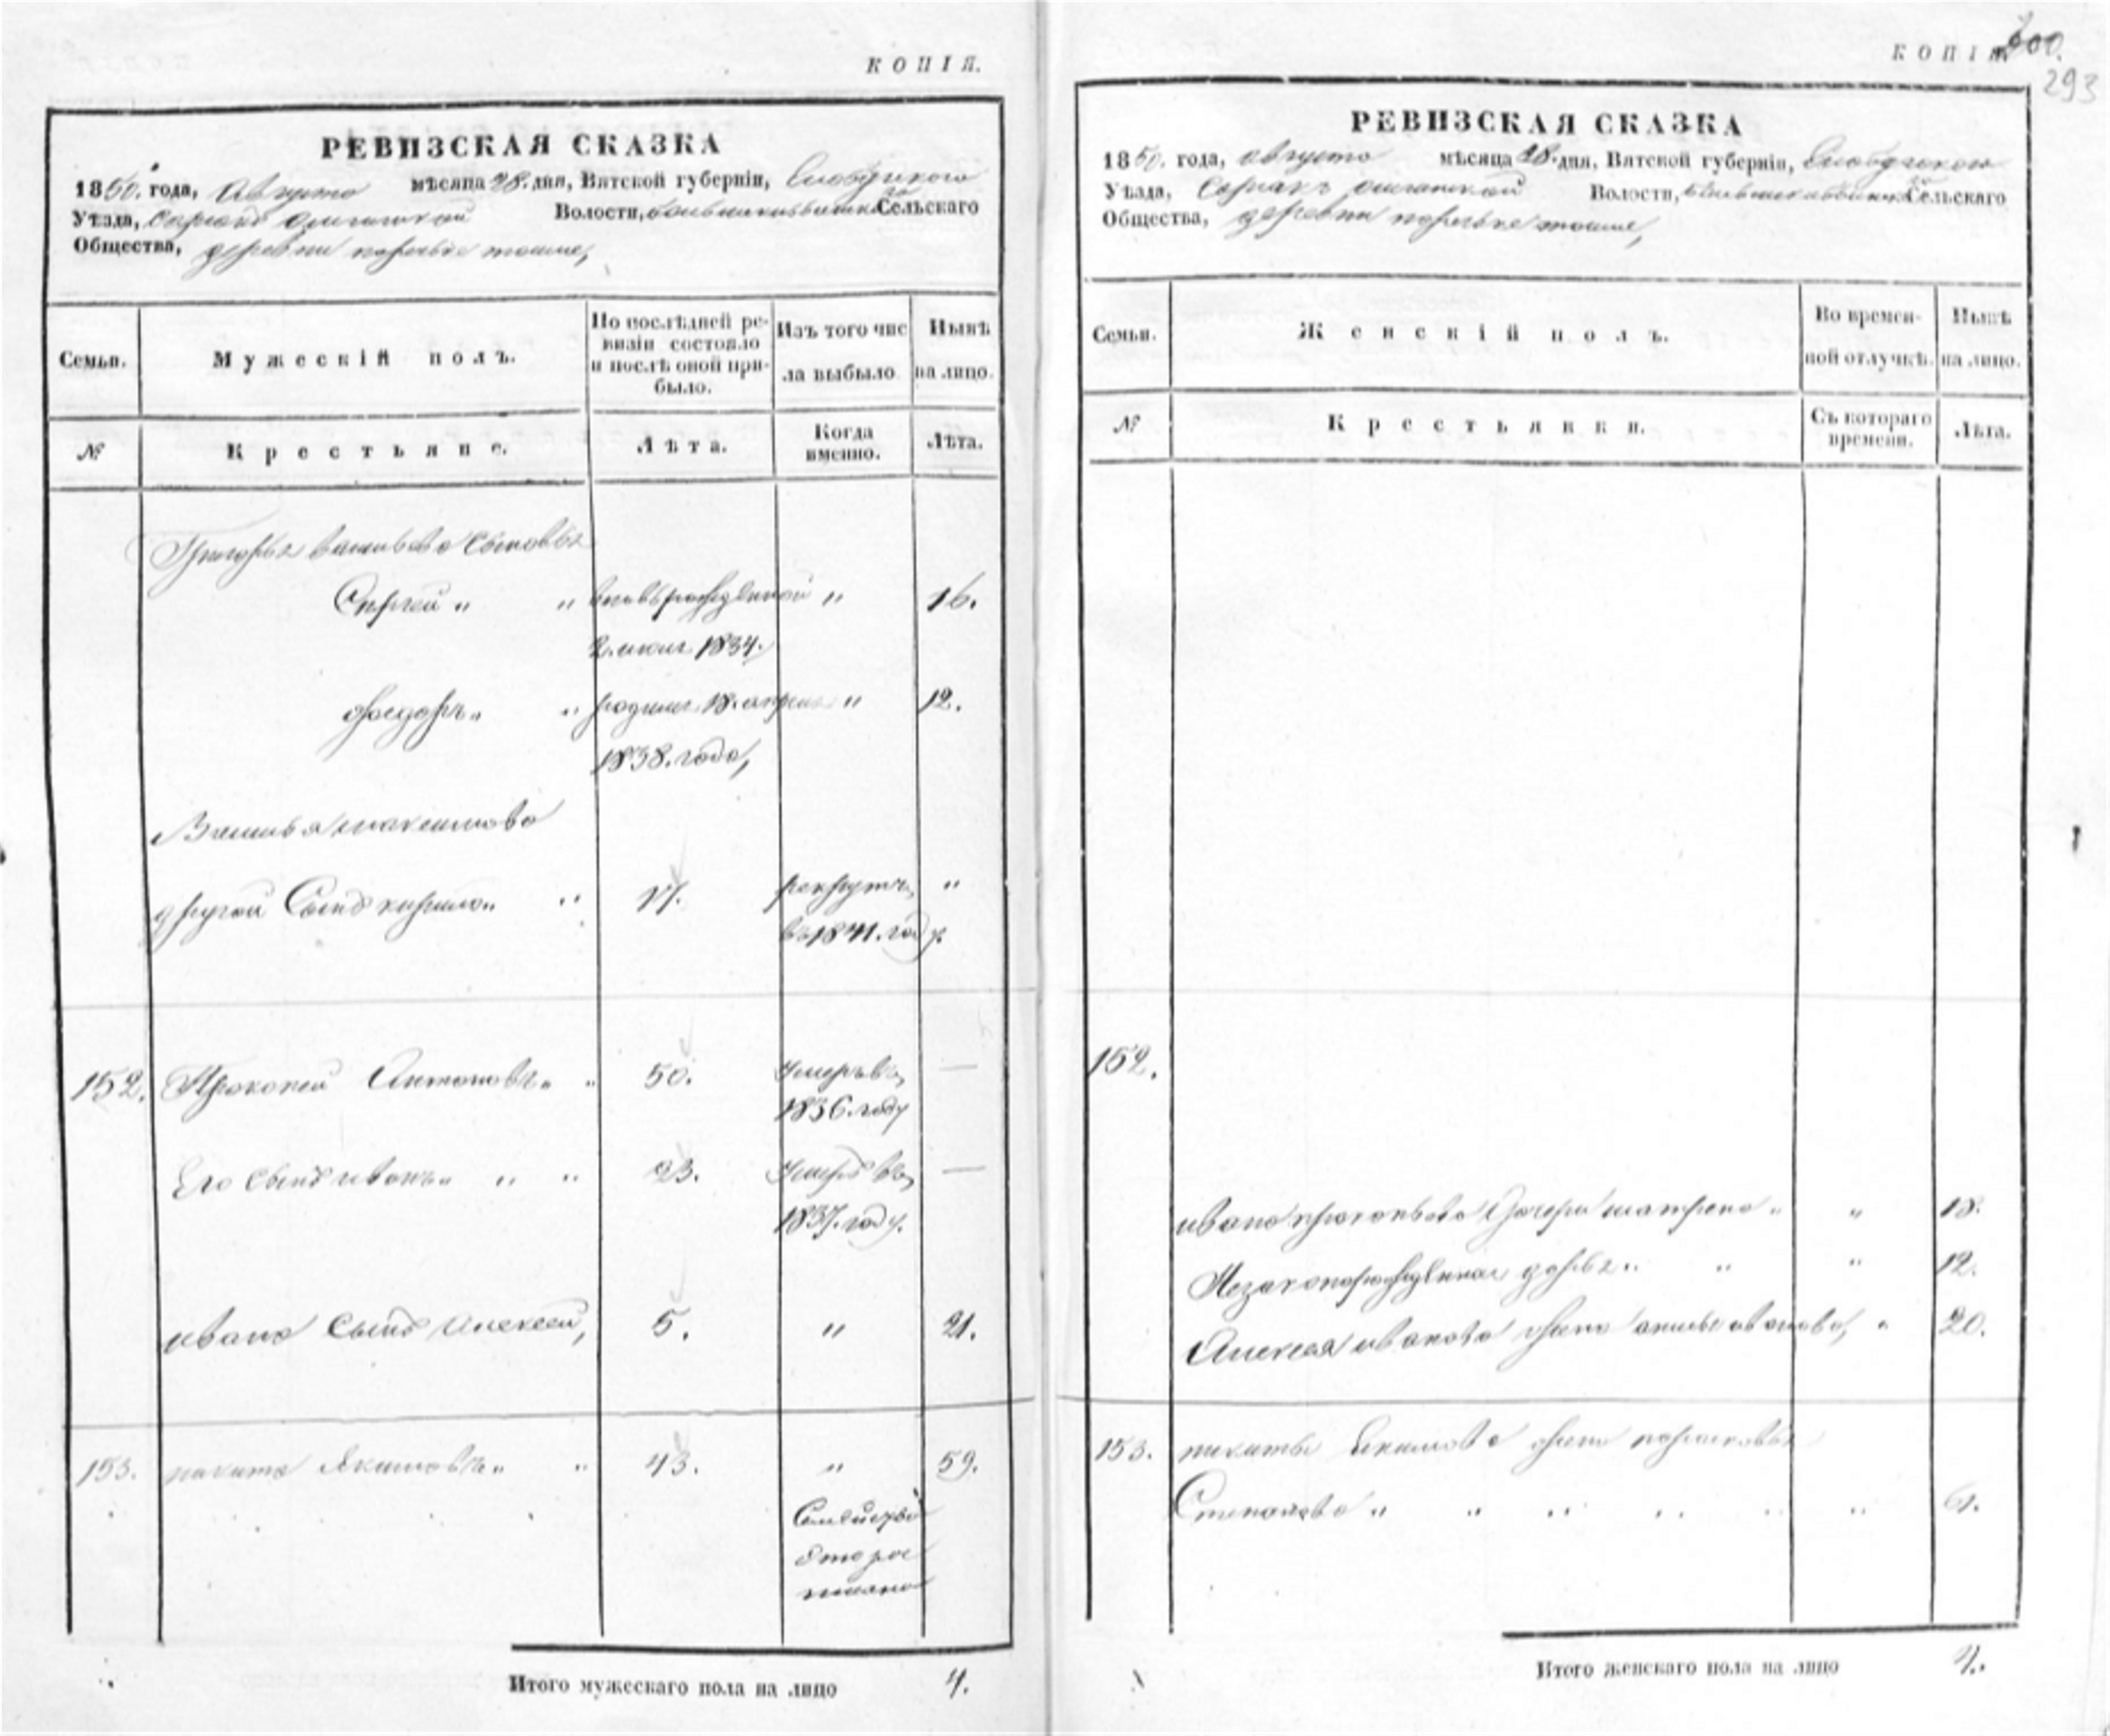 КОПІЯ.
РЕВИЗСКАЯ СКАЗКА
1850. года, Августа мѣсяца 28. дня, Вятской губерніи, Слободскаго
Уѣзда, Волости, Сельскаго
Общества, деревни
Семьи.
Мужескій полъ.
По послѣдней ре-
визіи состояло
и послѣ оной при-
было.
Изъ того чис
ла выбыло
Нынѣ
на лицо.
№
Крестьяне.
Лѣта.
Когда
именно.
Лѣта.
Григорья Васильева сыновья
Сергей " " вновьрожденной " 16.
2. июля 1834.
Федоръ " " родился 18. апреля " 12.
1838. года,
Василья Максимова
другой Сынъ кирило " " 17. рекрутъ "
въ 1841. году.
152. Прокопей Антоновъ " " 50. Умеръ въ —
1836. году
Его Сынъ иванъ " " " 23. Умеръ въ —
1837. году.
ивана Сынъ Алексей, 5. " 21.
153. никита Якимовъ " " 43. " 59.
Итого мужескаго пола на лицо 4.
КОПІЯ. 600.
293
РЕВИЗСКАЯ СКАЗКА
1850. года, августа мѣсяца 28. дня, Вятской губерніи, Слободскаго
Уѣзда, Волости, Сельскаго
Общества, деревни
Семьи.
Женскій полъ.
Во времен-
ной отлучкѣ.
Нынѣ
на лицо.
№
Крестьянки.
Съ котораго
времени.
Лѣта.
152.
ивана прокопьева Дочери матрена " " 18.
Незаконорожденная дарья " " " 12.
Алексея иванова жена иванова, " 20.
153. никиты Якимова жена парасковья
Степанова " " " " " " 61.
Итого женскаго пола на лицо 4.